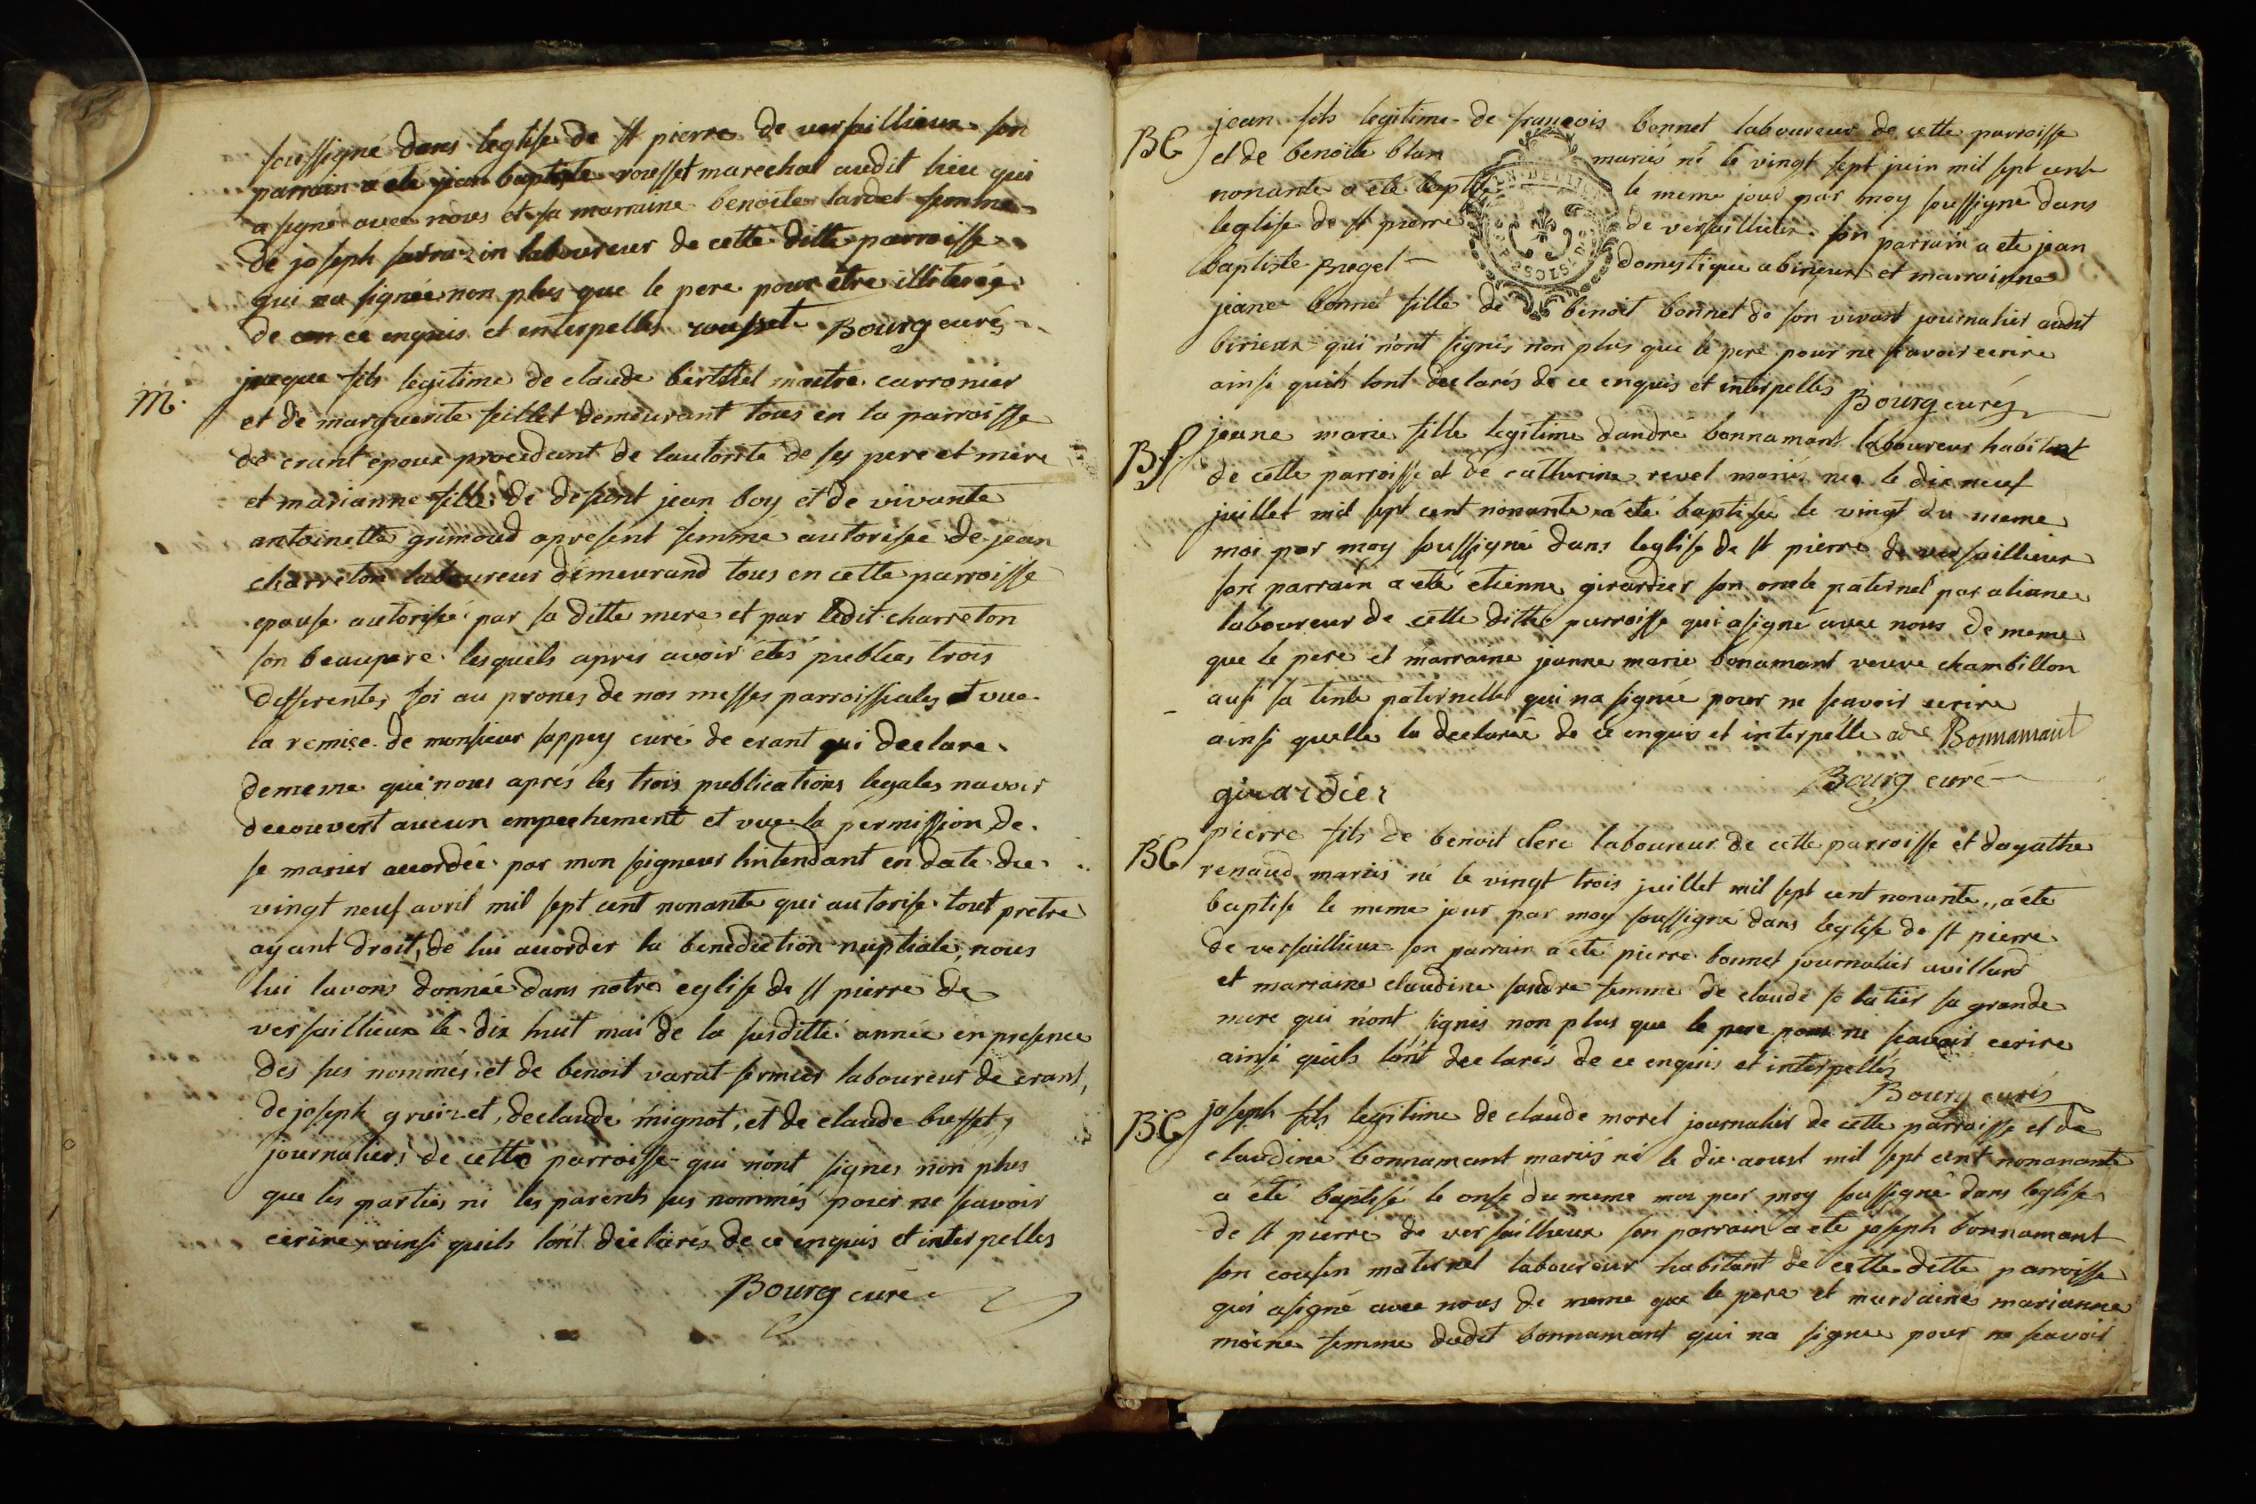 soussigné dans leglise de st pierre de versaillieux son
parrain a eté jean baptiste rousset marechal audit lieu qui
a signé avec nous et sa marraine benoite tardet femme
de joseph sarrazin laboureur de cette ditte parroisse
qui na signée non plus que le pere pour être illiteré
de ce enquis et interpellé rousset Bourg curé
M. jaque fils legitime de claude berthet maitre carronier
et de marguerite feillet demeurant tous en la parroisse
de crant epoux procedant de lautorité de ses pere et mere
et marianne fille de defunt jean boy et de vivante
antoinette grimaud apresent femme autorisée de jean
charreton laboureur demeurand tous en cette parroisse
epouse autorisé par sa ditte mere et par ledit charreton
son beaupere lesquels apres avoir étés publies trois
differentes foi au prones de nos messes parroissiales et vue
la remise de monsieur sappey curé de crant qui declare
dememe que nous aprés les trois publications legales navoir
decouvert aucun empechement et vue la permission de
se marier accordée par mon seigneur lintendant en date du
vingt neuf avril mil sept cent nonante qui autorise tout pretre
ayant droit, de lui accorder la benediction nuptiale, nous
lui lavons donnée dans notre eglise de st pierre de
versaillieux le dix huit mai de la susditte année en presence
des sus nommés et de benoit varat fermier laboureur de crant,
de joseph gruizet, declaude mignot, et de claude busset,
journaliers de cette parroisse qui nont signes non plus
que les parties ni les parents sus nommés pour ne scavoir
ecrire, ainsi quils lont declarés de ce enquis et interpelles
Bourg curé
BG jean fils legitime de francois bonnet laboureur de cette parroisse
et de benoite blan mariés né le vingt sept juin mil sept cent
nonante a été baptisé le meme jour par moy soussigné dans
leglise de st pierre de versaillieux son parrain a ete jean
baptiste Buget domestique abirieux et marrainne
jeane bonnet fille de benoit bonnet de son vivant journalier audit
birieux qui nont signés non plus que le pere pour ne scavoir ecrire
ainsi quils lont declarés de ce enquis et interpelles Bourg curé
Bf jeane marie fille legitime dandré bonnamant laboureur habitant
de cette parroisse et de catherine revel mariés nee le dix neuf
juillet mil sept cent nonante a été baptisée le vingt du meme
moi par moy soussigné dans leglise de st pierre de versaillieux
son parrain a eté etienne girardier son oncle paternel par aliance
laboureur de cette ditte parroisse qui asigné avec nous de meme
que le pere et marraine jeanne marie bonamant veuve chambillon
ausi sa tente paternelle qui na signée pour ne scavoir ecrire
ainsi quelle la declarée de ce enquis et interpelle Bonnamant
girardier Bourg curé
BG pierre fils de benoit clerc laboureur de cette parroisse et dagathe
renaud mariés né le vingt trois juillet mil sept cent nonante, a été
baptise le meme jour par moy soussigné dans leglise de st pierre
de versaillieux son parrain a été pierre bonnet journalier avillard
et marraine claudine sandre femme de claude sa grande
mere qui nont signés non plus que le pere pour ne scavoir ecrire
ainsi quils lont declarés de ce enquis et interpellés
Bourg curé
BG joseph fils legitime de claude morel journalier de cette parroisse et de
claudine bonnamant mariés né le dix aoust mil sept cent nonanante
a été baptisé le onse du meme moi par moy soussigné dans leglise
de st pierre de versaillieux son parrain a ete joseph bonnamant
son cousin maternel laboureur habitant de cette ditte parroisse
qui asigné avec nous de meme que le pere et marraine marianne
moine femme dudit bonnamant qui na signee pour ne scavoir